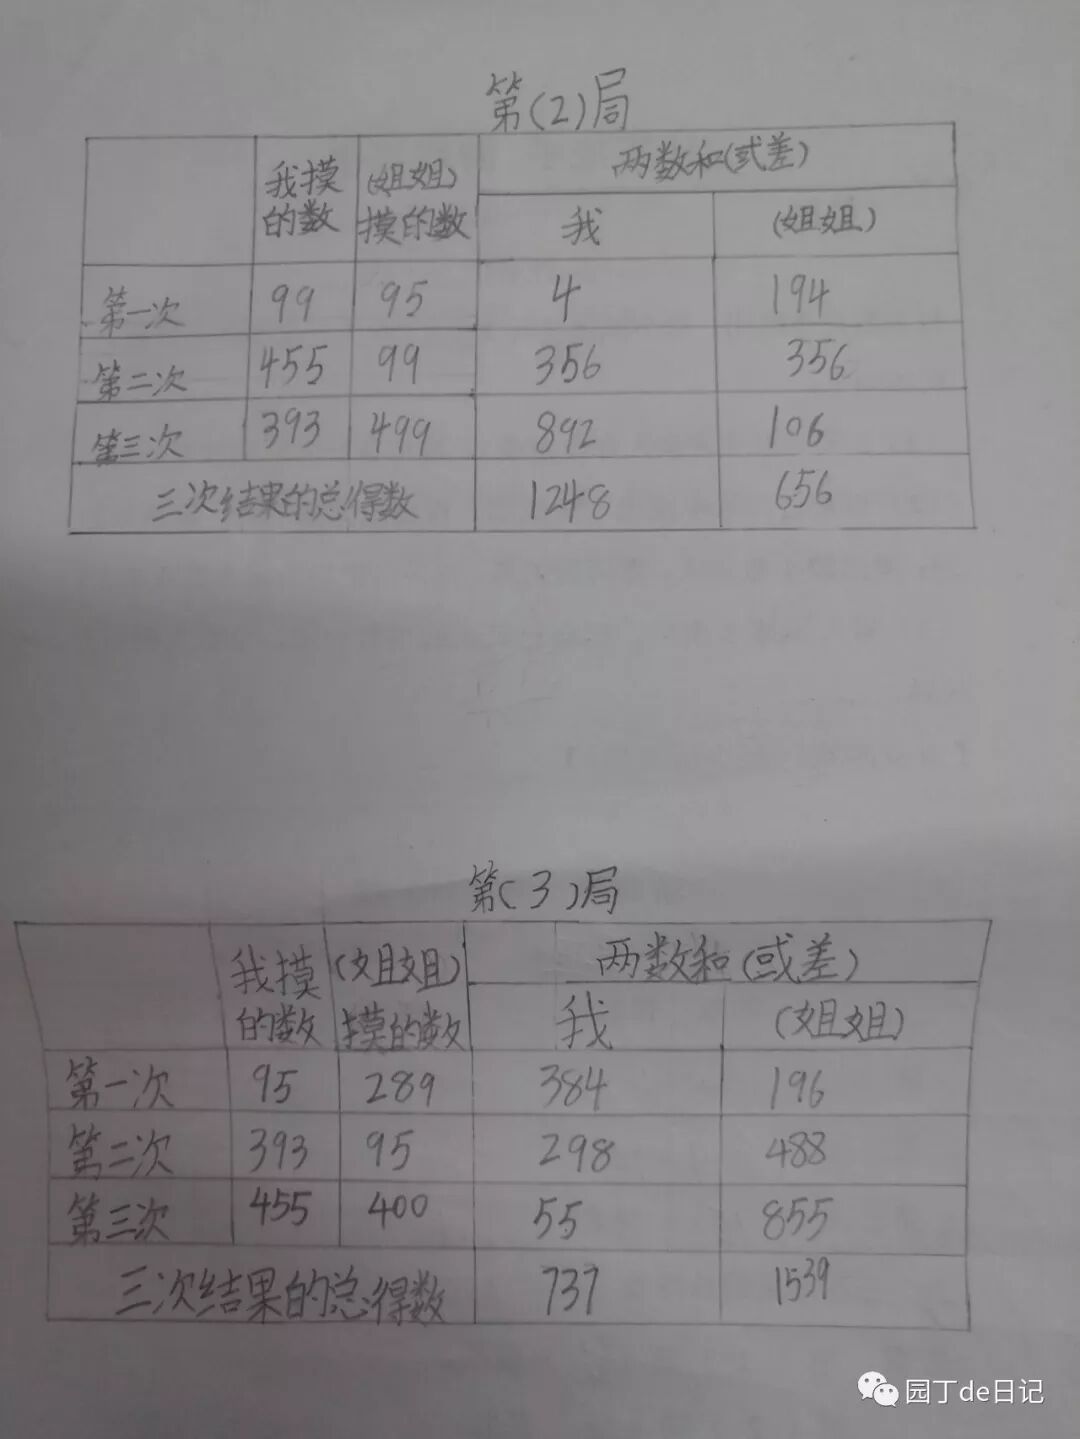 第(2)局
我摸的数 (姐姐)摸的数 两数和(或差)
我 (姐姐)
第一次 99 95 4 194
第二次 455 99 356 356
第三次 393 499 892 106
三次结果的总得数 1248 656
第(3)局
我摸的数 (姐姐)摸的数 两数和(或差)
我 (姐姐)
第一次 95 289 384 196
第二次 393 95 298 488
第三次 455 400 55 855
三次结果的总得数 737 1539
园丁de日记